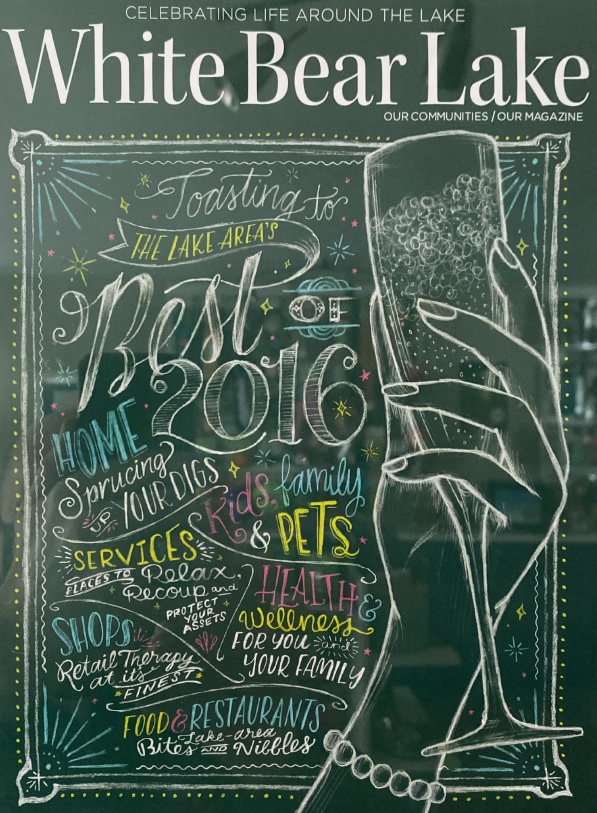 CELEBRATING LIFE AROUND THE LAKE
White Bear Lake
OUR COMMUNITIES / OUR MAGAZINE
Toasting to
THE LAKE AREA'S
Best OF
2016
HOME
Sprucing
UP YOUR DIGS
Kids, family
& PETS
SERVICES
PLACES TO Relax,
Recoup and
PROTECT
YOUR
ASSETS
HEALTH &
Wellness
FOR YOU and
YOUR FAMILY
SHOPS
Retail Therapy
at it's
FINEST
FOOD & RESTAURANTS
Lake-area
Bites AND Nibbles